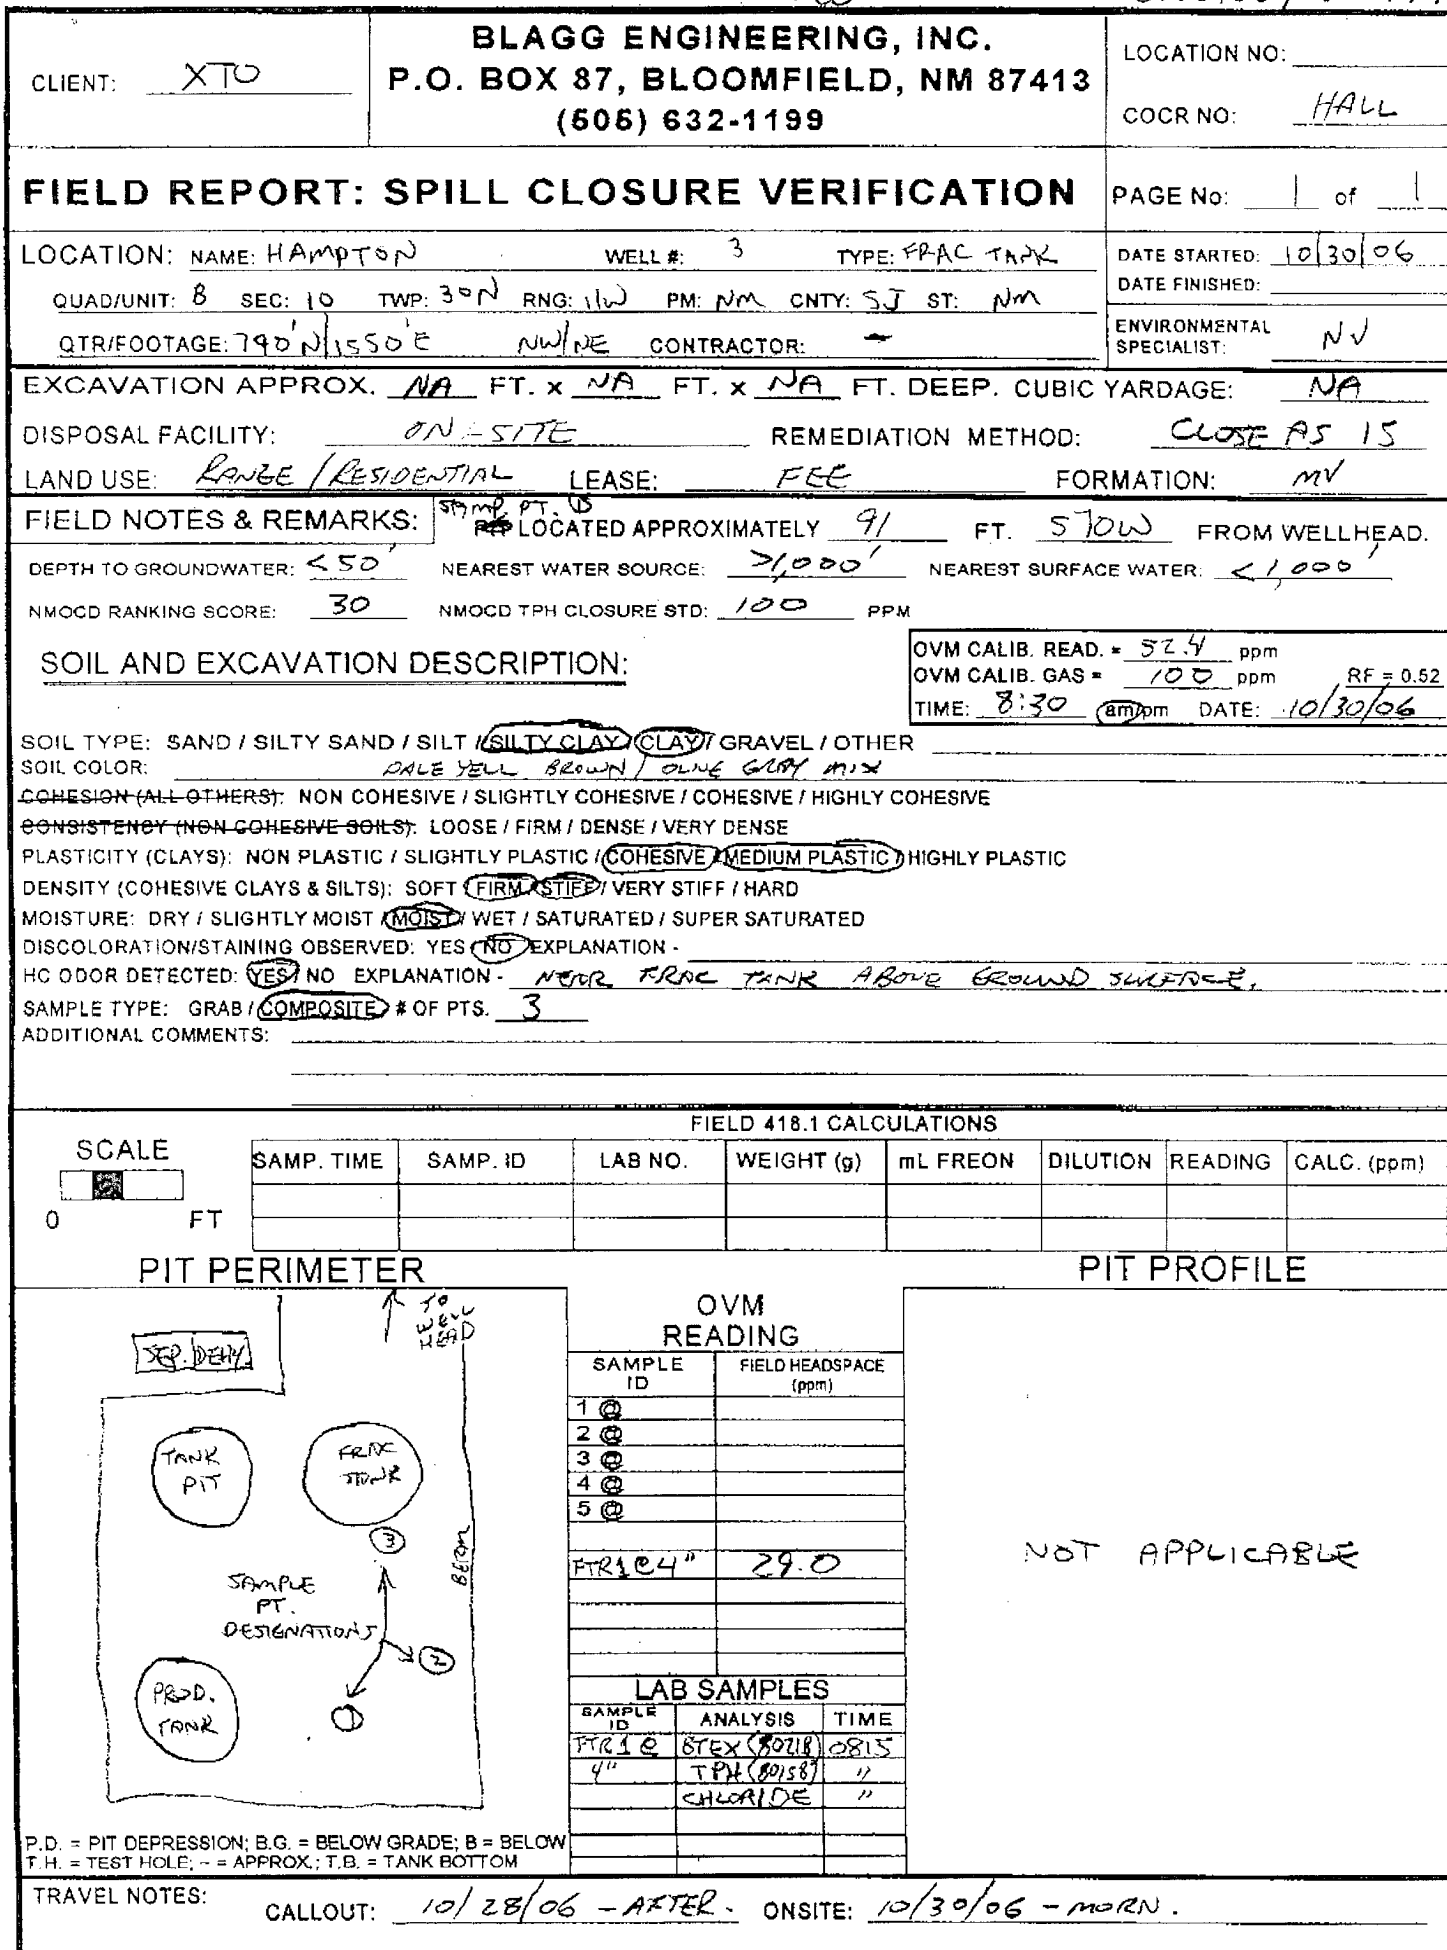 BLAGG ENGINEERING, INC.
P.O. BOX 87, BLOOMFIELD, NM 87413
(505) 632-1199
CLIENT: XTO
LOCATION NO:
COCR NO: HALL
FIELD REPORT: SPILL CLOSURE VERIFICATION
PAGE No: 1 of 1
LOCATION: NAME: HAMPTON WELL #: 3 TYPE: FRAC TANK
QUAD/UNIT: B SEC: 10 TWP: 30N RNG: 11W PM: NM CNTY: SJ ST: NM
QTR/FOOTAGE: 790'N/1550'E NW/NE CONTRACTOR: -
DATE STARTED: 10/30/06
DATE FINISHED:
ENVIRONMENTAL SPECIALIST: NV
EXCAVATION APPROX. NA FT. x NA FT. x NA FT. DEEP. CUBIC YARDAGE: NA
DISPOSAL FACILITY: ON-SITE REMEDIATION METHOD: CLOSE AS IS
LAND USE: RANGE / RESIDENTIAL LEASE: FEE FORMATION: MV
FIELD NOTES & REMARKS: SAMP. PT. ① LOCATED APPROXIMATELY 91 FT. S70W FROM WELLHEAD.
DEPTH TO GROUNDWATER: <50' NEAREST WATER SOURCE: >1,000' NEAREST SURFACE WATER: <1,000'
NMOCD RANKING SCORE: 30 NMOCD TPH CLOSURE STD: 100 PPM
SOIL AND EXCAVATION DESCRIPTION:
OVM CALIB. READ. = 52.4 ppm
OVM CALIB. GAS = 100 ppm RF = 0.52
TIME: 8:30 am/pm DATE: 10/30/06
SOIL TYPE: SAND / SILTY SAND / SILT / SILTY CLAY / CLAY / GRAVEL / OTHER
SOIL COLOR: PALE YELL BROWN / OLIVE GRAY MIX
COHESION (ALL OTHERS): NON COHESIVE / SLIGHTLY COHESIVE / COHESIVE / HIGHLY COHESIVE
CONSISTENCY (NON COHESIVE SOILS): LOOSE / FIRM / DENSE / VERY DENSE
PLASTICITY (CLAYS): NON PLASTIC / SLIGHTLY PLASTIC / COHESIVE / MEDIUM PLASTIC / HIGHLY PLASTIC
DENSITY (COHESIVE CLAYS & SILTS): SOFT / FIRM / STIFF / VERY STIFF / HARD
MOISTURE: DRY / SLIGHTLY MOIST / MOIST / WET / SATURATED / SUPER SATURATED
DISCOLORATION/STAINING OBSERVED: YES / NO EXPLANATION -
HC ODOR DETECTED: YES / NO EXPLANATION - NEAR FRAC TANK ABOVE GROUND SURFACE.
SAMPLE TYPE: GRAB / COMPOSITE # OF PTS. 3
ADDITIONAL COMMENTS:
FIELD 418.1 CALCULATIONS
SCALE
0 FT
SAMP. TIME SAMP. ID LAB NO. WEIGHT (g) mL FREON DILUTION READING CALC. (ppm)
PIT PERIMETER
PIT PROFILE
TO WELL HEAD
SEP. DEHY.
TANK PIT
FRAC TANK
3
BERM
SAMPLE PT. DESIGNATIONS
2
PROD. TANK
1
OVM READING
SAMPLE ID FIELD HEADSPACE (ppm)
1 @
2 @
3 @
4 @
5 @
FTR1@4" 29.0
LAB SAMPLES
SAMPLE ID ANALYSIS TIME
FTR1 @ BTEX (8021B) 0815
4" TPH (8015B) "
CHLORIDE "
NOT APPLICABLE
P.D. = PIT DEPRESSION; B.G. = BELOW GRADE; B = BELOW
T.H. = TEST HOLE; ~ = APPROX.; T.B. = TANK BOTTOM
TRAVEL NOTES: CALLOUT: 10/28/06 - AFTER. ONSITE: 10/30/06 - MORN.